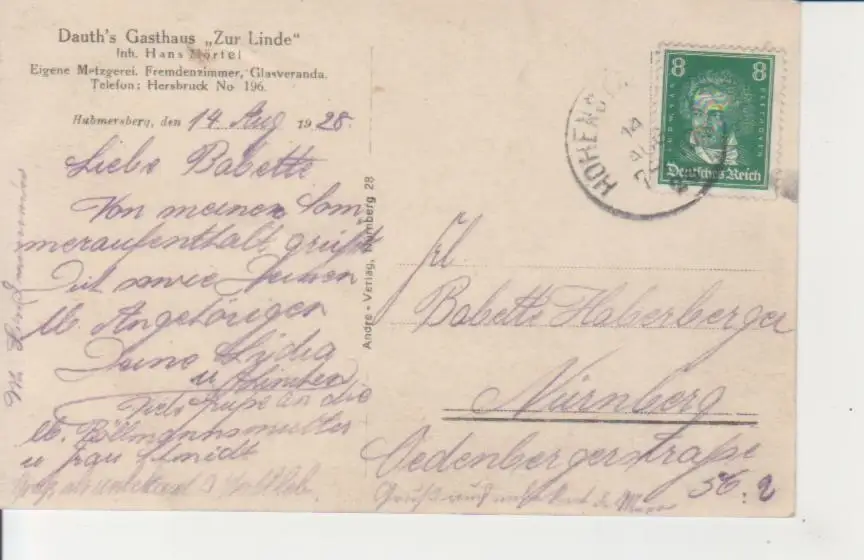 Dauth's Gasthaus „Zur Linde"
Inh. Hans Hörtel
Eigene Metzgerei. Fremdenzimmer, Glasveranda.
Telefon: Hersbruck No 196.
Hubmersberg, den 14. Aug. 1928.
Liebe Babette
Von meinen Som
meraufenthalt grüßt
Dich sowie Deinen
lb. Angehörigen
Deine Lidia
u
Viele Grüße an die
lb. Böllmannsmutter
u Frau Schmidt
Andre - Verlag, Nürnberg 28
8 8
LUDWIG VAN BEETHOVEN
Deutsches Reich
HOHEN
14 AUG
Frl.
Babette Haberberger
Nürnberg
Oedenbergerstraße
56. 2
unbekannt